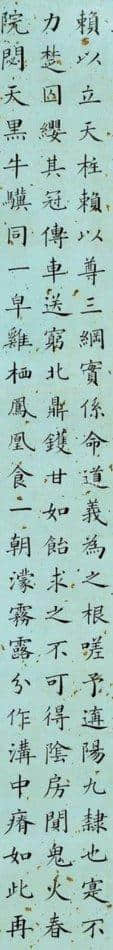 賴以立天柱賴以尊三綱實係命道義為之根嗟予遘陽九隸也寔不
力楚囚纓其冠傳車送窮北鼎鑊甘如飴求之不可得陰房闃鬼火春
院閟天黑牛驥同一皁雞栖鳳凰食一朝濛霧露分作溝中瘠如此再